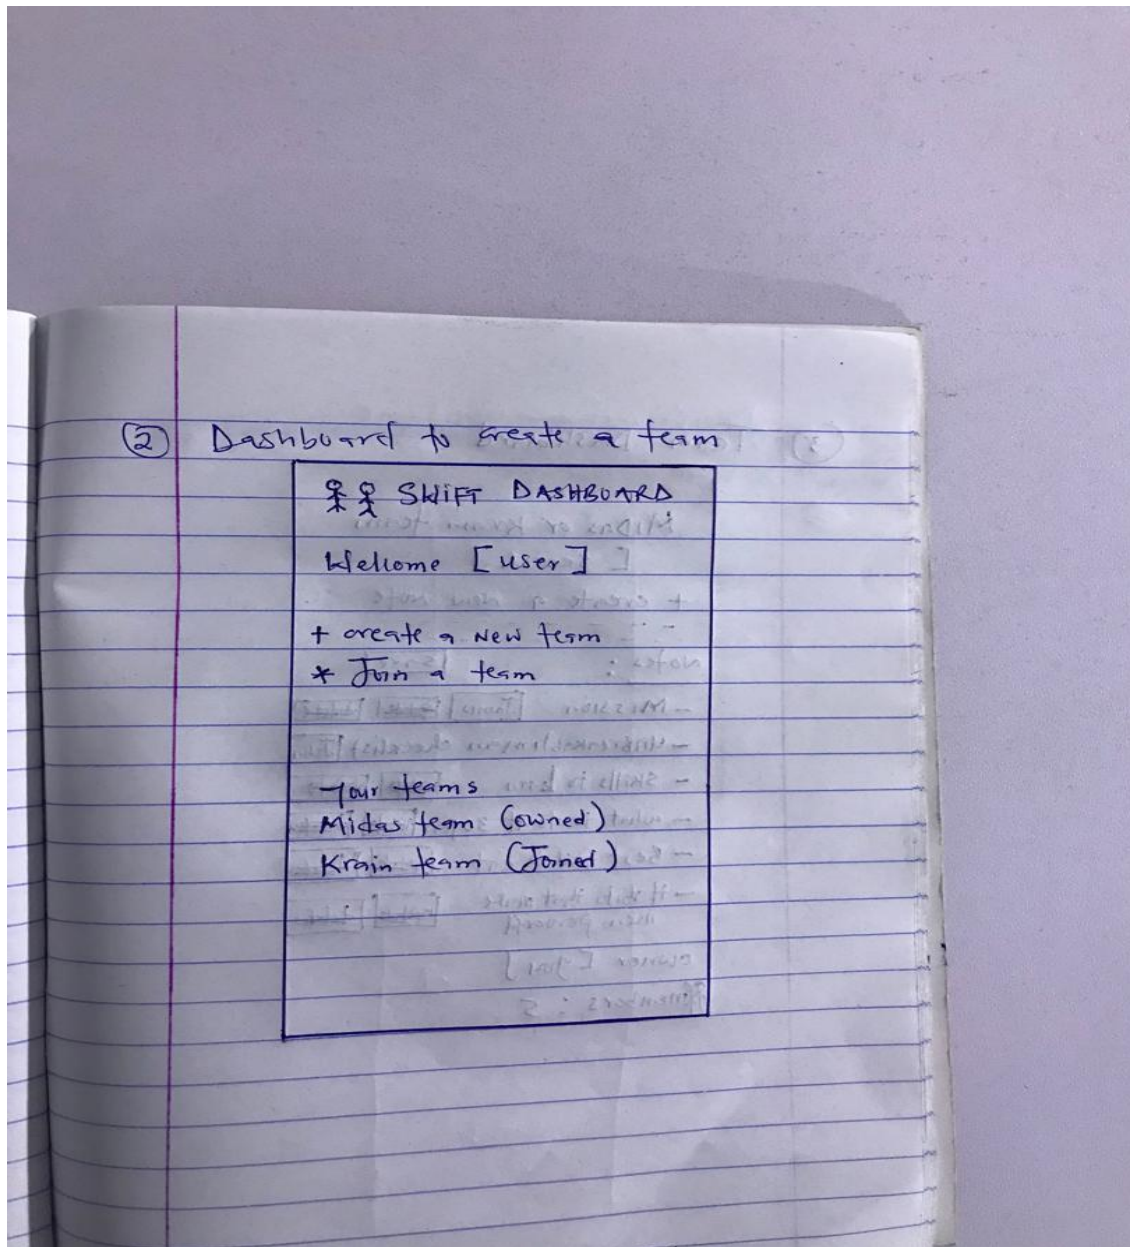 ② Dashboard to create a team
SWIFT DASHBOARD
Welcome [user]
+ create a New team
* Join a team
Your teams
Midas team (owned)
Krain team (Joined)